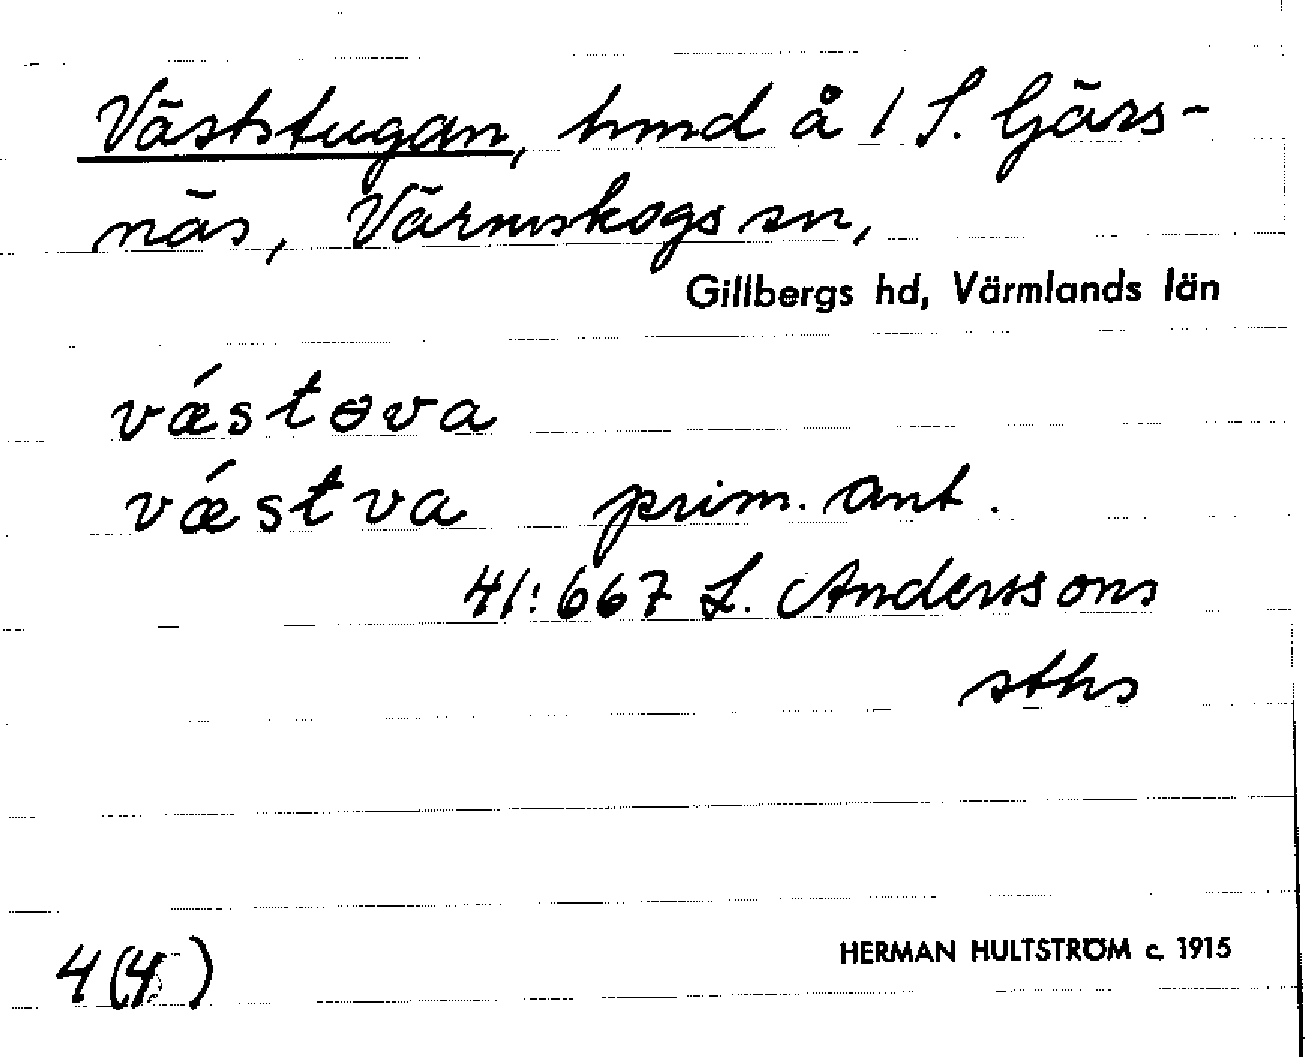 Väststugan, hmd å 1 S. Gärs-
näs, Värmskogs sn,
Gillbergs hd, Värmlands län
vǽstɵva
vǽstva prim. ant.
41:667 L. Anderssons
sths
4(4)
HERMAN HULTSTRÖM c. 1915